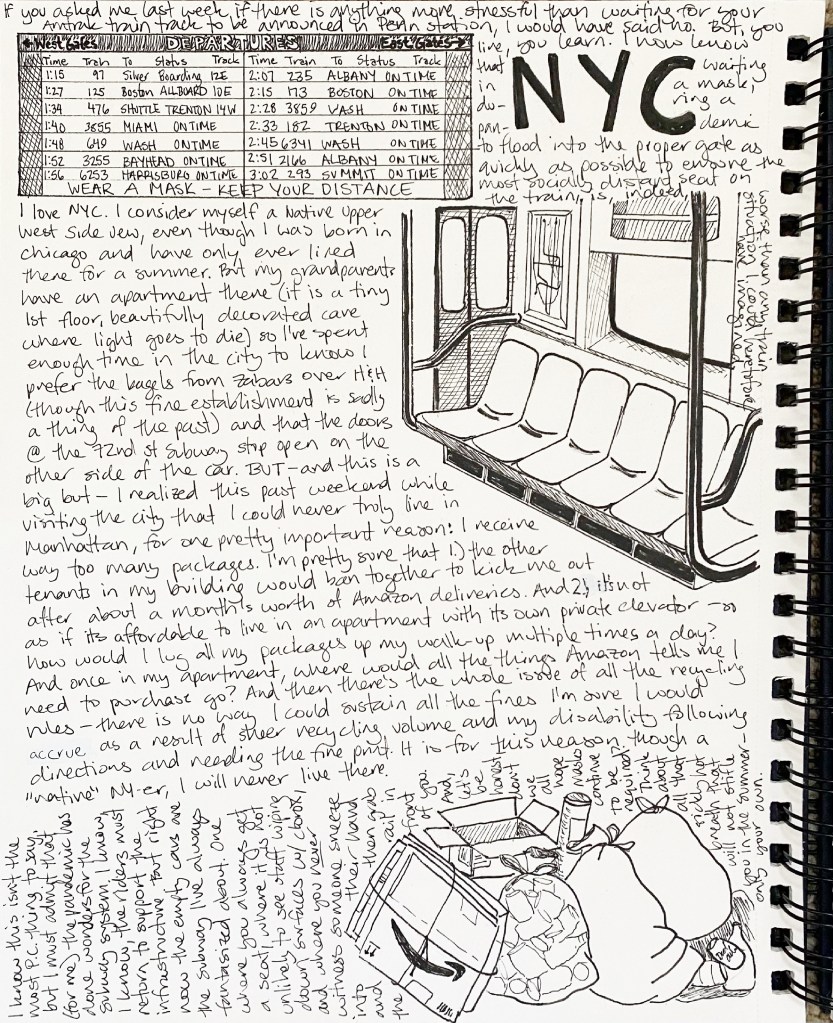 If you asked me last week if there is anything more stressful than waiting for your
Amtrak train track to be announced in Penn station, I would have said no. But, you
live, you learn. I now know
that waiting
in a mask,
du- ring a
pan- demic
to flood into the proper gate as
quickly as possible to ensure the
most socially distant seat on
the train, is, indeed,
worse than any train
situation I could heretofore
have imagined.
NYC
← West Gates DEPARTURES East Gates →
Time Train To Status Track
1:15 97 Silver Boarding 12E
1:27 125 Boston ALL BOARD 10E
1:34 476 SHUTTLE TRENTON 14W
1:40 3855 MIAMI ON TIME
1:48 649 WASH ON TIME
1:52 3255 BAYHEAD ON TIME
1:56 6253 HARRISBURG ON TIME
Time Train To Status Track
2:07 235 ALBANY ON TIME
2:15 173 BOSTON ON TIME
2:28 3859 WASH ON TIME
2:33 182 TRENTON ON TIME
2:45 6341 WASH ON TIME
2:51 2166 ALBANY ON TIME
3:02 293 SUMMIT ON TIME
WEAR A MASK - KEEP YOUR DISTANCE
I love NYC. I consider myself a Native Upper
West Side Jew, even though I was born in
chicago and have only ever lived
there for a summer. But my grandparents
have an apartment there (it is a tiny
1st floor, beautifully decorated cave
where light goes to die) so I've spent
enough time in the city to know I
prefer the bagels from Zabars over H&H
(though this fine establishment is sadly
a thing of the past) and that the doors
@ the 72nd st subway stop open on the
other side of the car. BUT - and this is a
big but - I realized this past weekend while
visiting the city that I could never truly live in
Manhattan, for one pretty important reason: I receive
way too many packages. I'm pretty sure that 1.) the other
tenants in my building would ban together to kick me out
after about a month's worth of Amazon deliveries. And 2.) it's not
as if it's affordable to live in an apartment with its own private elevator - so
how would I lug all my packages up my walk-up multiple times a day?
And once in my apartment, where would all the things Amazon tells me I
need to purchase go? And then there's the whole issue of all the recycling
rules - there is no way I could sustain all the fines I'm sure I would
accrue as a result of sheer recycling volume and my disability following
directions and reading the fine print. It is for this reason, though a
"native" NY-er, I will never live there.
I know this isn't the
most P.C. thing to say,
but I must admit that
(for me) the pandemic has
done wonders for the
subway system. I know,
I know, the riders must
return to support the
infrastructure but right
now the empty cars are
the subway I've always
fantasized about. One
where you always get
a seat, where it is not
unlikely to see staff wiping
down surfaces w/ clorox,
and where you never
witness someone sneeze
into their hand
and then grab
the rail in
front of you.
And,
let's
be
honest
don't
we
all
hope
masks
continue
to be
required?
Think
about
all that
rides
breath that
will not stifle
you in the summer-
only your own.